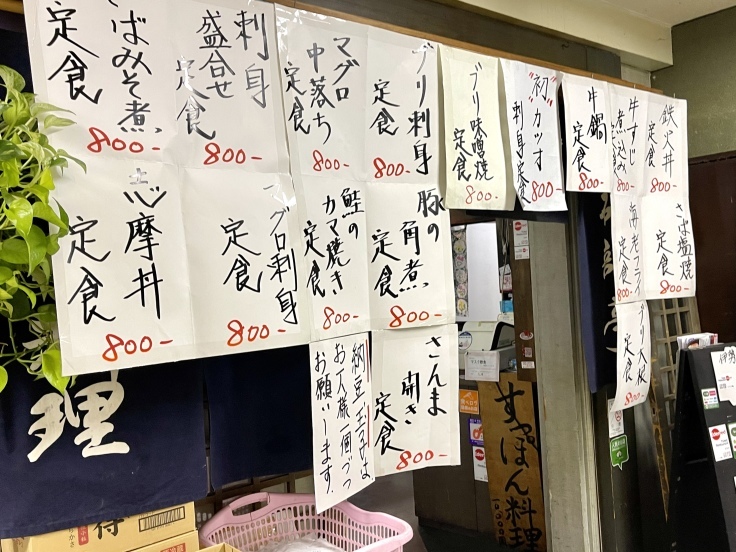 さばみそ煮
定食
800-
刺身
盛合せ
定食
800-
マグロ
中落ち
定食
800-
ブリ刺身
定食
800-
ブリ味噌焼
定食
800-
"初"カツオ
刺身定食
800-
牛鍋
定食
800-
牛すじ
煮込み
定食
800-
鉄火丼
定食
800-
志摩丼
定食
800-
マグロ刺身
定食
800-
鮭の
カマ焼き
定食
800-
豚の
角煮
定食
800-
海老フライ
定食
800-
さば塩焼
定食
800-
納豆、玉子は、
お一人様一個づつ
お願いします。
さんま
開き
定食
800-
ブリ大根
定食
800-
理
すっぽん料理